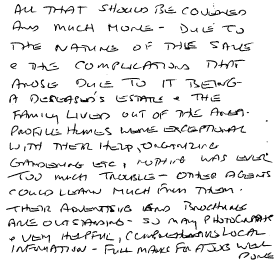 ALL THAT SHOULD BE COVERED
AND MUCH MORE - DUE TO
THE NATURE OF THE SALE
& THE COMPLICATIONS THAT
AROSE DUE TO IT BEING
A DECEASED'S ESTATE & THE
FAMILY LIVED OUT OF THE AREA.
PROFILE HOMES WERE EXCEPTIONAL
WITH THEIR HELP, ORGANIZING
GARDENING ETC, NOTHING WAS EVER
TOO MUCH TROUBLE - OTHER AGENTS
COULD LEARN MUCH FROM THEM.
THEIR ADVERTISING AND BROCHURE
ARE OUTSTANDING - SO MANY PHOTOGRAPHS
& VERY HELPFUL, LOCAL
INFORMATION - FULL MARKS FOR A JOB WELL
DONE